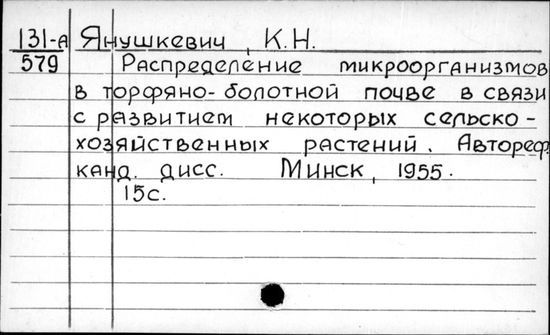 131-А Янушкевич, К.Н.
579 Распределение микроорганизмов
в торфяно-болотной почве в связи
с развитием некоторых сельско-
хозяйственных растений. Автореф.
канд. дисс. Минск, 1955.
15с.